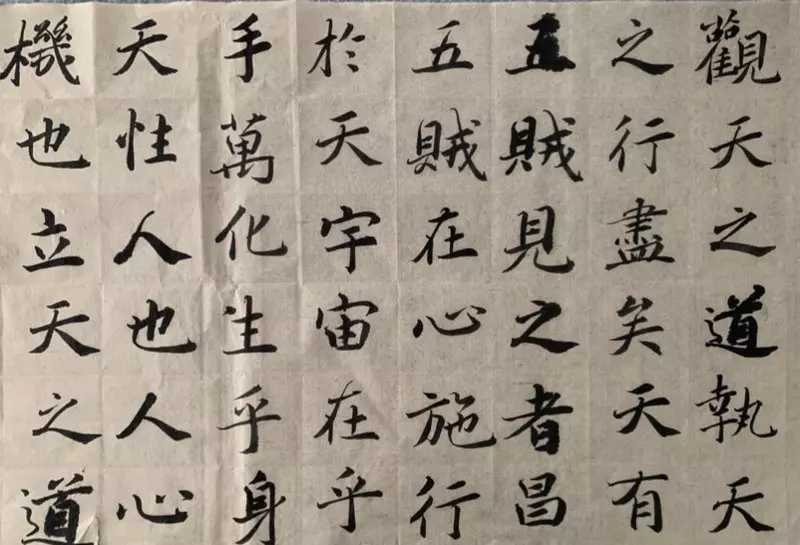 觀天之道執天
之行盡矣天有
五賊見之者昌
五賊在心施行
於天宇宙在乎
手萬化生乎身
天性人也人心
機也立天之道